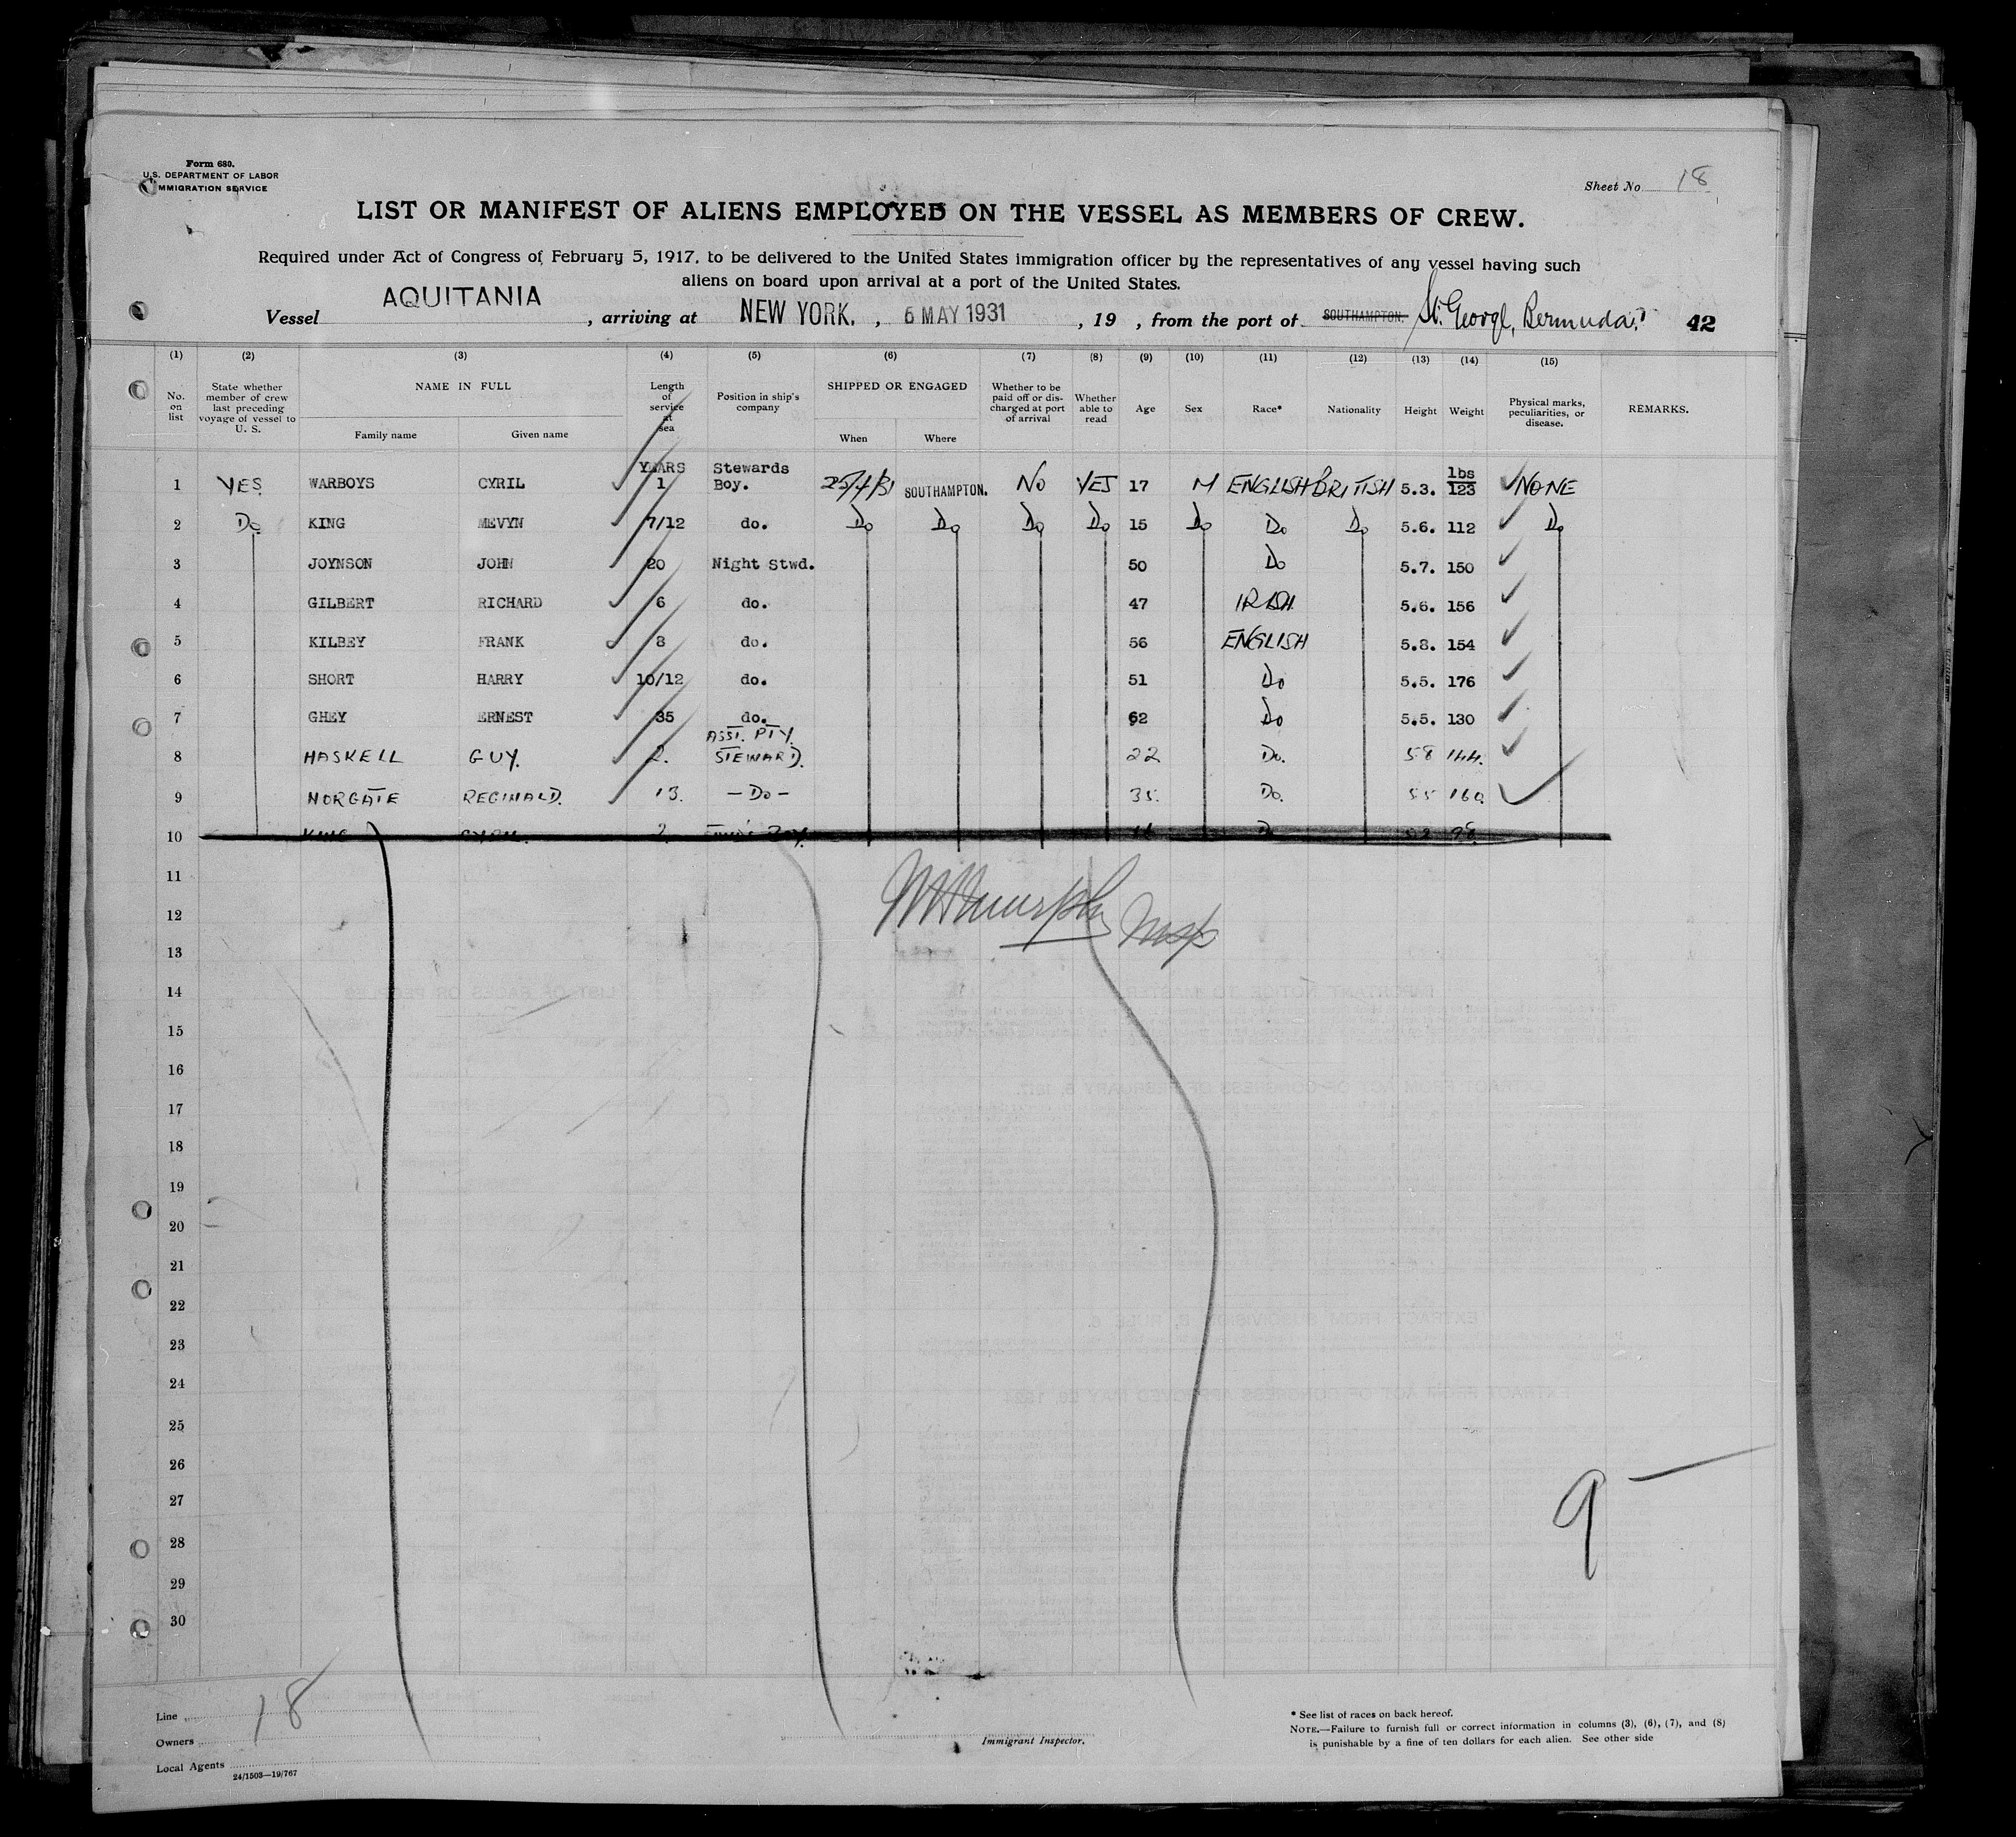 Form 680.
U.S. DEPARTMENT OF LABOR
IMMIGRATION SERVICE
Sheet No 18
LIST OR MANIFEST OF ALIENS EMPLOYED ON THE VESSEL AS MEMBERS OF CREW.
Required under Act of Congress of February 5, 1917, to be delivered to the United States immigration officer by the representatives of any vessel having such
aliens on board upon arrival at a port of the United States.
Vessel AQUITANIA, arriving at NEW YORK., 6 MAY 1931, 19 , from the port of SOUTHAMPTON. St. George, Bermuda. 42
(1) (2) (3) (4) (5) (6) (7) (8) (9) (10) (11) (12) (13) (14) (15)
No. on list State whether member of crew last preceding voyage of vessel to U. S. NAME IN FULL Family name Given name Length of service at sea Position in ship's company SHIPPED OR ENGAGED When Where Whether to be paid off or discharged at port of arrival Whether able to read Age Sex Race* Nationality Height Weight Physical marks, peculiarities, or disease. REMARKS.
1 YES WARBOYS CYRIL YEARS 1 Stewards Boy. 25/4/31 SOUTHAMPTON. NO YES 17 M ENGLISH BRITISH 5.3. lbs 123 NONE
2 Do KING MEVYN 7/12 do. Do Do Do Do 15 Do Do Do 5.6. 112 Do
3 JOYNSON JOHN 20 Night Stwd. 50 Do 5.7. 150
4 GILBERT RICHARD 6 do. 47 IRISH 5.6. 156
5 KILBEY FRANK 8 do. 56 ENGLISH 5.8. 154
6 SHORT HARRY 10/12 do. 51 Do 5.5. 176
7 GHEY ERNEST 35 do. 62 Do 5.5. 130
8 HASKELL GUY. 2. ASST. PTY. STEWARD. 22 Do. 58 144.
9 NORGATE REGINALD. 13. - Do - 35. Do. 55 160.
10 KING
11
12
13
14
15
16
17
18
19
20
21
22
23
24
25
26
27
28
29
30
9
18
Line
Owners
Local Agents
24/1503—19/767
Immigrant Inspector.
* See list of races on back hereof.
NOTE.—Failure to furnish full or correct information in columns (3), (6), (7), and (8)
is punishable by a fine of ten dollars for each alien. See other side